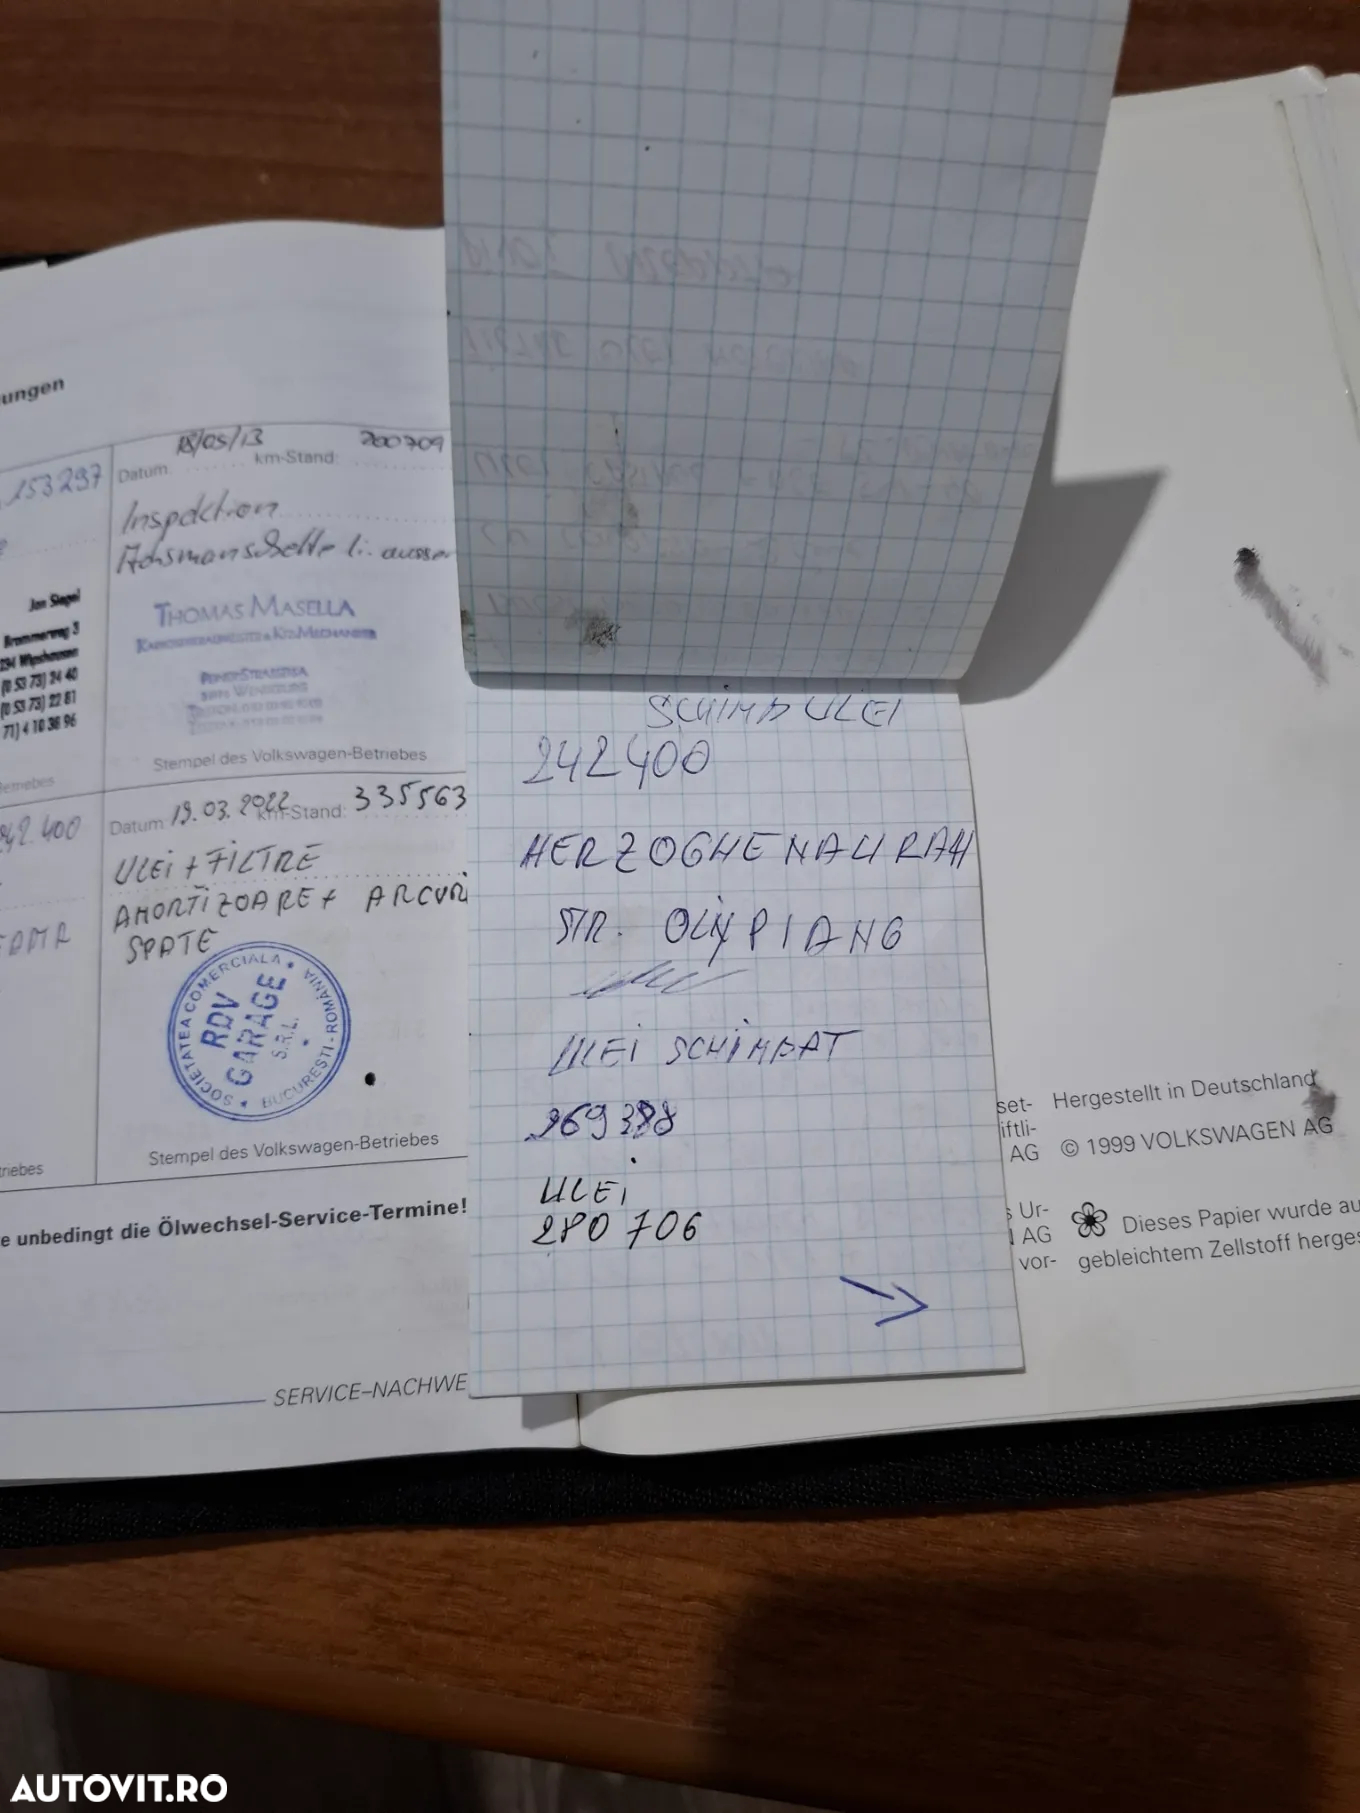 ungen
153297
Jan Siegel
Brommerweg 3
(0 53 73) 24 40
(0 53 73) 22 81
71) 4 10 36 96
Betriebes
242.400
triebes
Datum: 18/05/13 km-Stand: 200709
Inspektion
Achsmanschette li. ausser
THOMAS MASELLA
Stempel des Volkswagen-Betriebes
Datum: 19.03.2022 km-Stand: 335563
ULEI + FILTRE
AMORTIZOARE + ARCURI
SPATE
SOCIETATEA COMERCIALA
RDV
GARAGE
S.R.L.
BUCURESTI - ROMÂNIA
Stempel des Volkswagen-Betriebes
e unbedingt die Ölwechsel-Service-Termine!
SERVICE–NACHWE
SCHIMB ULEI
242400
HERZOGHENAURAH
STR. OLYPIANG
ULEI SCHIMBAT
ULEI
280706
set-
iftli-
AG
Ur-
AG
vor-
Hergestellt in Deutschland
© 1999 VOLKSWAGEN AG
Dieses Papier wurde au
gebleichtem Zellstoff herges
AUTOVIT.RO